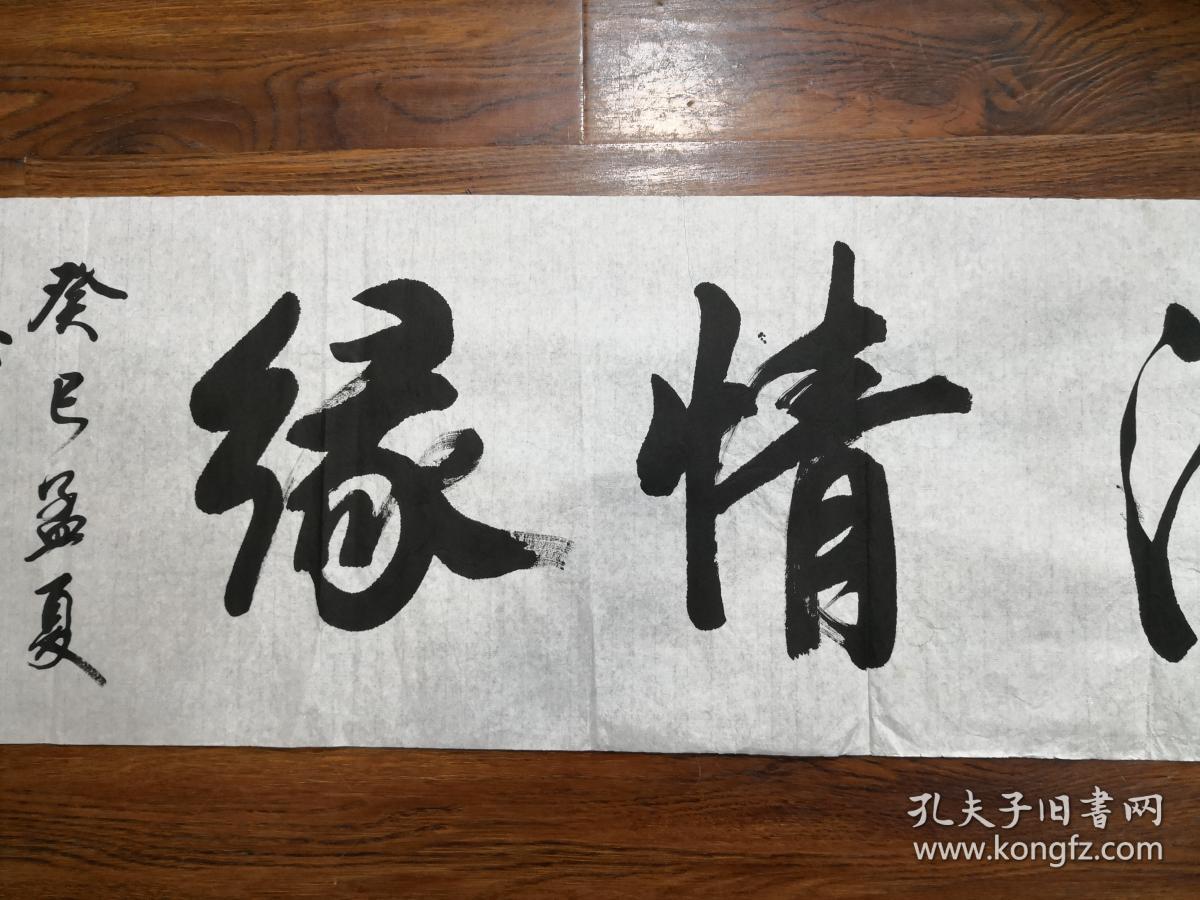 情緣
癸巳孟夏
孔夫子旧書网
www.kongfz.com